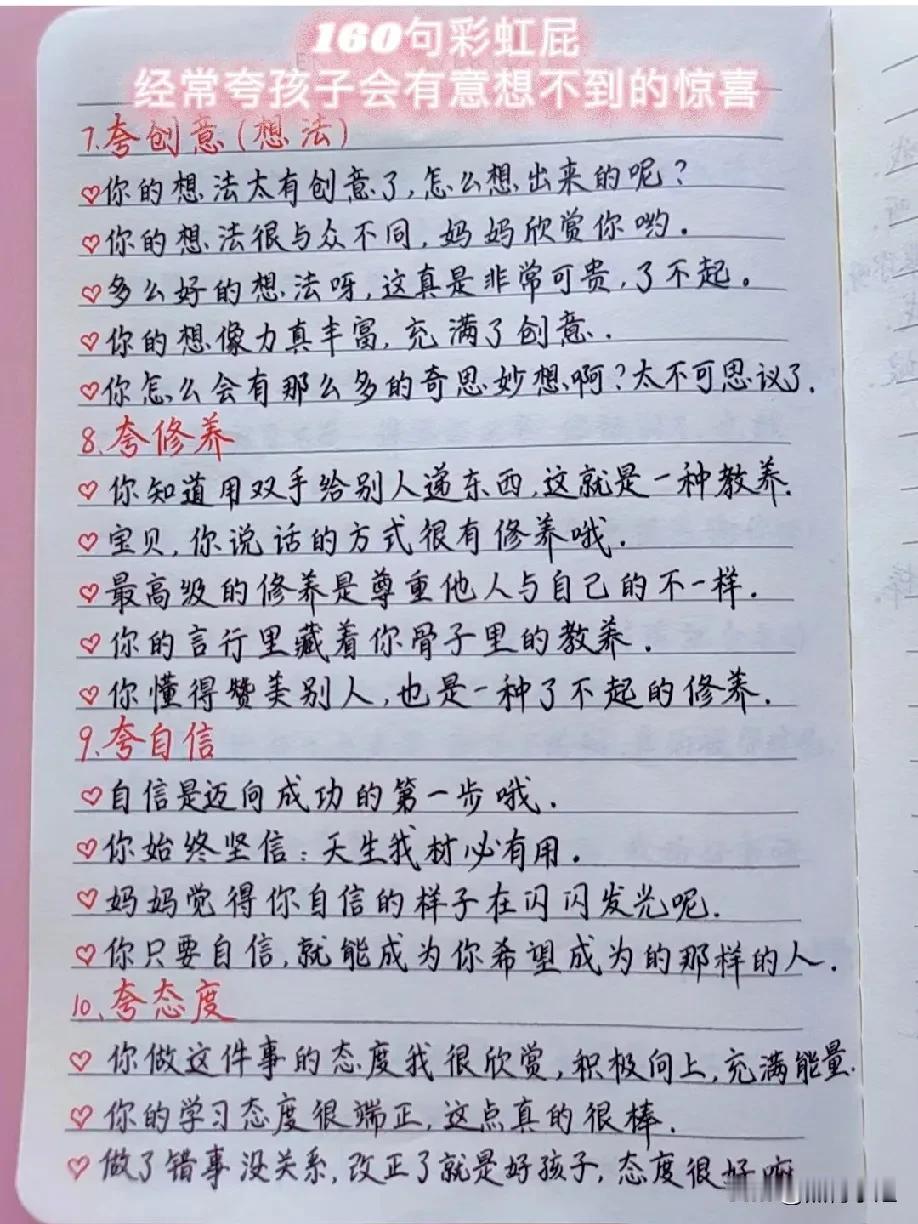 160句彩虹屁
经常夸孩子会有意想不到的惊喜
7.夸创意(想法)
♡你的想法太有创意了,怎么想出来的呢?
♡你的想法很与众不同,妈妈欣赏你哟.
♡多么好的想法呀,这真是非常可贵,了不起。
♡你的想像力真丰富,充满了创意.
♡你怎么会有那么多的奇思妙想啊?太不可思议了.
8.夸修养
♡你知道用双手给别人递东西,这就是一种教养.
♡宝贝,你说话的方式很有修养哦.
♡最高级的修养是尊重他人与自己的不一样.
♡你的言行里藏着你骨子里的教养.
♡你懂得赞美别人,也是一种了不起的修养.
9.夸自信
♡自信是迈向成功的第一步哦.
♡你始终坚信:天生我材必有用.
♡妈妈觉得你自信的样子在闪闪发光呢.
♡你只要自信,就能成为你希望成为的那样的人.
10.夸态度
♡你做这件事的态度我很欣赏,积极向上,充满能量.
♡你的学习态度很端正,这点真的很棒.
♡做了错事没关系,改正了就是好孩子,态度很好嘛